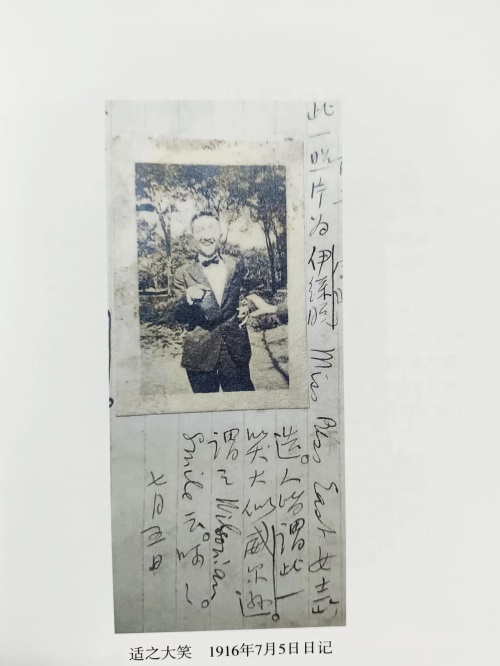 此一照片为伊絲脱 Miss Bess East 女士所
造。人皆謂此一
笑大似威尔遜。
謂之 Wilsonian
Smile 云。
七月日
适之大笑 1916年7月5日日记